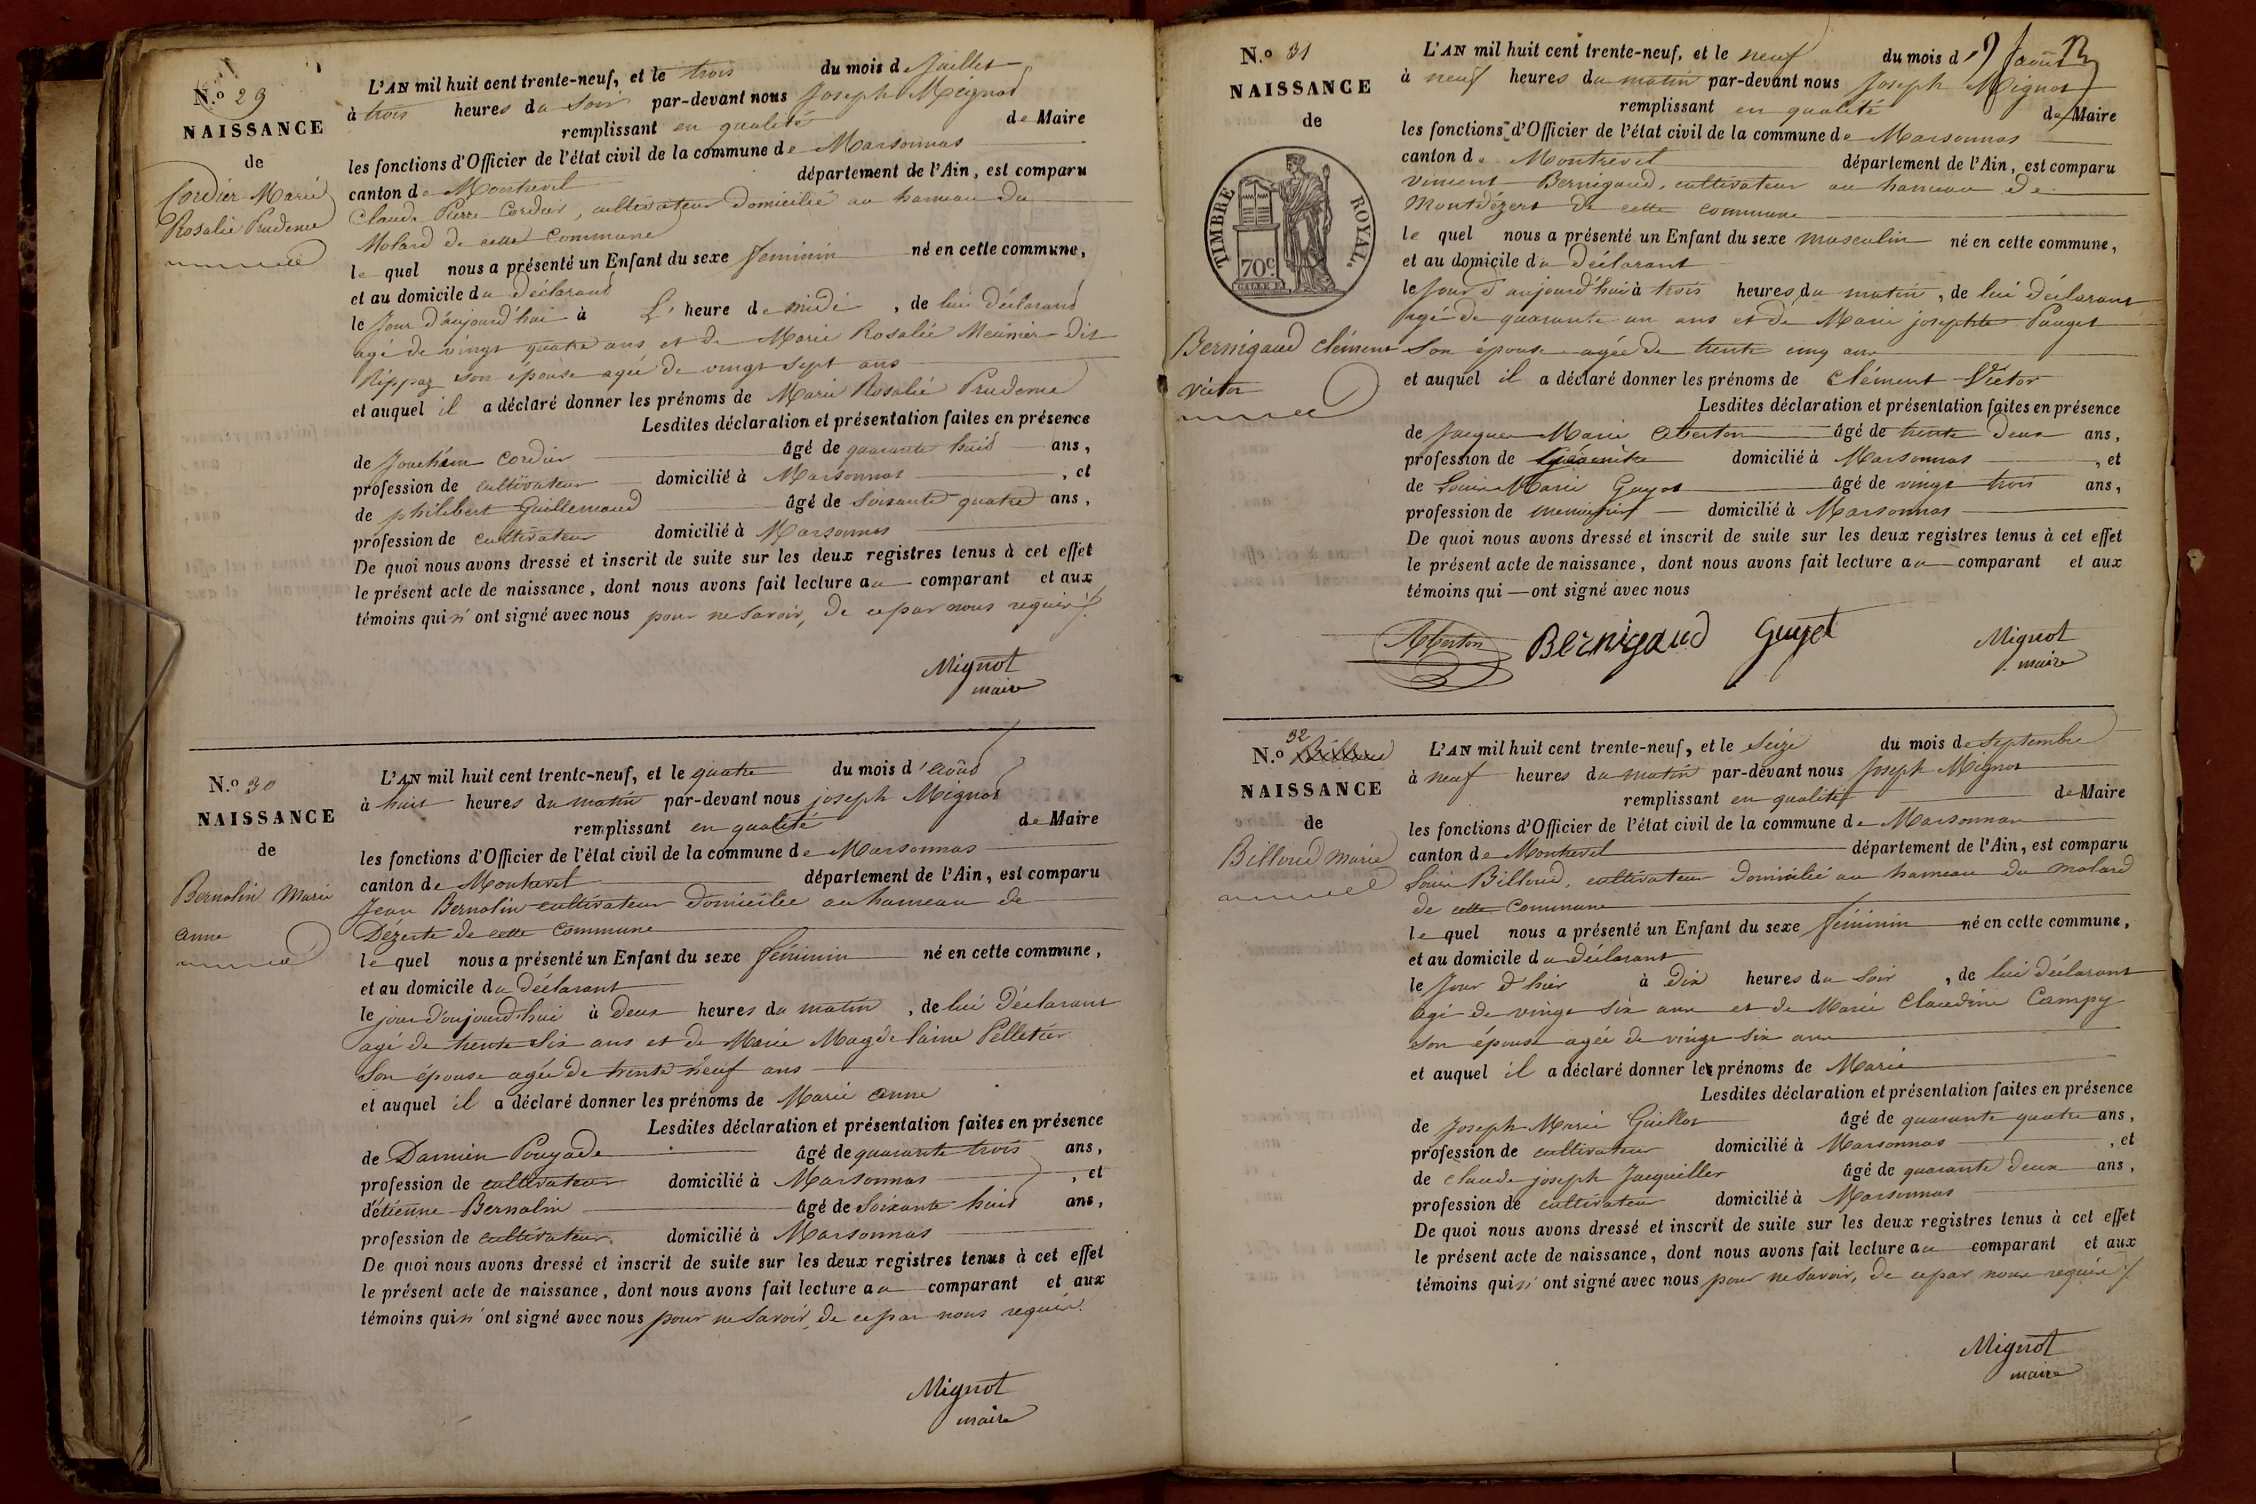 N.o 29
NAISSANCE
de
Cordier Marie
Rosalie Prudence
L'AN mil huit cent trente-neuf, et le trois du mois de Juillet
à trois heures du Soir par-devant nous Joseph Mignot
remplissant en qualité de Maire
les fonctions d'Officier de l'état civil de la commune de Marsonnas
canton de Montrevel département de l'Ain, est comparu
Claude Pierre Cordier, cultivateur domicilié au hameau du
Molard de cette Commune
le quel nous a présenté un Enfant du sexe féminin né en cette commune,
et au domicile du Déclarant
le Jour d'aujourd'hui à L'heure de midi, de lui déclarant
agé de vingt quatre ans et de Marie Rosalie Meunier dit
Rippaz son épouse agée de vingt sept ans
et auquel il a déclaré donner les prénoms de Marie Rosalie Prudence
Lesdites déclaration et présentation faites en présence
de Joachim Cordier âgé de quarante huit ans,
profession de cultivateur domicilié à Marsonnas, et
de philibert Guillemaud âgé de Soixante quatre ans,
profession de cultivateur domicilié à Marsonnas
De quoi nous avons dressé et inscrit de suite sur les deux registres tenus à cet effet
le présent acte de naissance, dont nous avons fait lecture au comparant et aux
témoins qui n'ont signé avec nous pour ne savoir, de ce par nous requis
Mignot
maire
N.o 30
NAISSANCE
de
Bernolin Marie
anne
L'AN mil huit cent trente-neuf, et le quatre du mois d'août
à huit heures du matin par-devant nous joseph Mignot
remplissant en qualité de Maire
les fonctions d'Officier de l'état civil de la commune de Marsonnas
canton de Montrevel département de l'Ain, est comparu
Jean Bernolin cultivateur domicilié au hameau de
Dézerte de cette Commune
le quel nous a présenté un Enfant du sexe féminin né en cette commune,
et au domicile du Déclarant
le jour d'aujourd'hui à deux heures du matin, de lui Déclarant
agé de trente Six ans et de Marie Magdelaine Pelletier
Son épouse agée de trente neuf ans
et auquel il a déclaré donner les prénoms de Marie anne
Lesdites déclaration et présentation faites en présence
de Damien Pouyade âgé de quarante trois ans,
profession de cultivateur domicilié à Marsonnas, et
d'étienne Bernolin âgé de Soixante huit ans,
profession de cultivateur domicilié à Marsonnas
De quoi nous avons dressé et inscrit de suite sur les deux registres tenus à cet effet
le présent acte de naissance, dont nous avons fait lecture au comparant et aux
témoins qui n'ont signé avec nous pour ne savoir, de ce par nous requis.
Mignot
maire
N.o 31
NAISSANCE
de
TIMBRE ROYAL
70c
Bernigaud clément
victor
L'AN mil huit cent trente-neuf, et le neuf du mois d'août
à neuf heures du matin par-devant nous Joseph Mignot
remplissant en qualité de Maire
les fonctions d'Officier de l'état civil de la commune de Marsonnas
canton de Montrevel département de l'Ain, est comparu
vincent Bernigaud, cultivateur au hameau de
Montdézert de cette commune
le quel nous a présenté un Enfant du sexe masculin né en cette commune,
et au domicile du Déclarant
le Jour d'aujourd'hui à trois heures du matin, de lui déclarant
agé de quarante un ans et de Marie josephte Pauget
Son épouse agée de trente cinq ans
et auquel il a déclaré donner les prénoms de Clément Victor
Lesdites déclaration et présentation faites en présence
de Jacques Marie Aberton âgé de trente deux ans,
profession de domicilié à Marsonnas, et
de Louis Marie Guyot âgé de vingt trois ans,
profession de menuisier domicilié à Marsonnas
De quoi nous avons dressé et inscrit de suite sur les deux registres tenus à cet effet
le présent acte de naissance, dont nous avons fait lecture au comparant et aux
témoins qui ont signé avec nous
Aberton Bernigaud Guyot Mignot
maire
N.o 32
NAISSANCE
de
Billoud Marie
L'AN mil huit cent trente-neuf, et le Seize du mois de Septembre
à neuf heures du matin par-devant nous Joseph Mignot
remplissant en qualité de Maire
les fonctions d'Officier de l'état civil de la commune de Marsonnas
canton de Montrevel département de l'Ain, est comparu
Louis Billoud, cultivateur domicilié au hameau du Molard
de cette Commune
le quel nous a présenté un Enfant du sexe féminin né en cette commune,
et au domicile du Déclarant
le Jour d'hier à Dix heures du Soir, de lui déclarant
agé de vingt six ans et de Marie Claudine Campy
son épouse agée de vingt six ans
et auquel il a déclaré donner les prénoms de Marie
Lesdites déclaration et présentation faites en présence
de Joseph Marie Guillot âgé de quarante quatre ans,
profession de cultivateur domicilié à Marsonnas, et
de Claude joseph Jacquiller âgé de quarante deux ans,
profession de cultivateur domicilié à Marsonnas
De quoi nous avons dressé et inscrit de suite sur les deux registres tenus à cet effet
le présent acte de naissance, dont nous avons fait lecture au comparant et aux
témoins qui n'ont signé avec nous pour ne savoir, de ce par nous requis
Mignot
maire